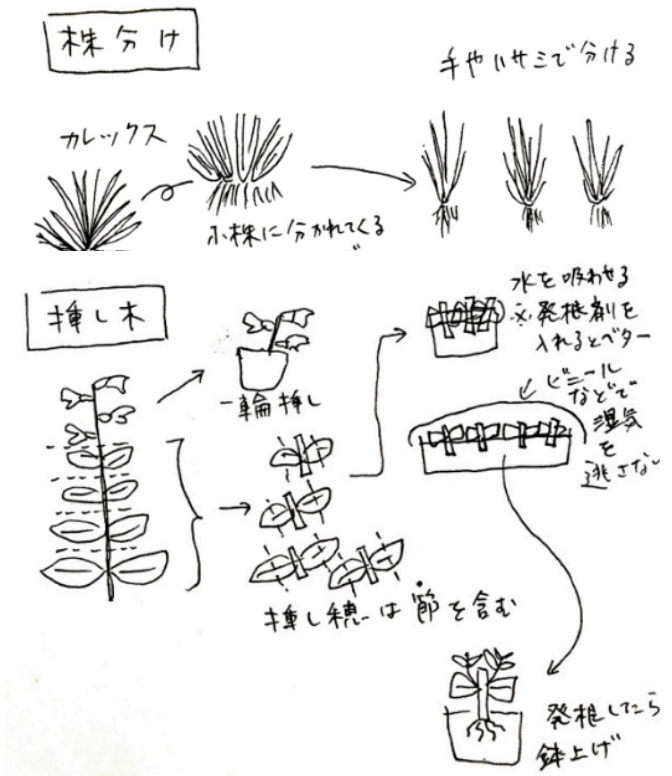 株分け
手やハサミで分ける
カレックス
小株に分かれてくる
挿し木
水を吸わせる
※発根剤を
入れるとベター
一輪挿し
ビニール
などで
湿気
を
逃さない
挿し穂は節を含む
発根したら
鉢上げ